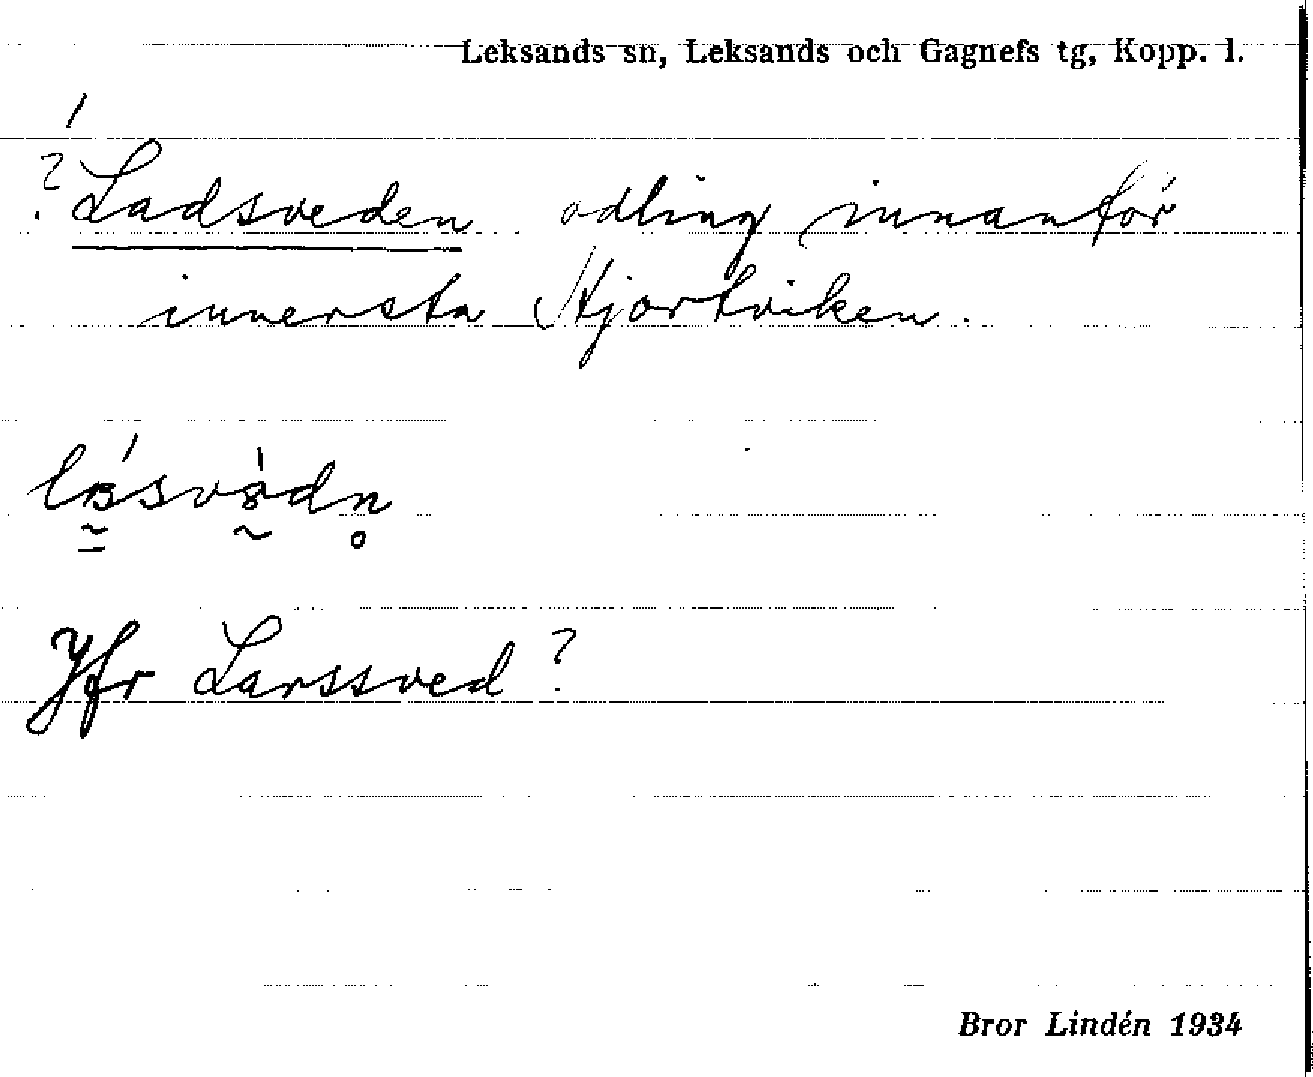 Leksands sn, Leksands och Gagnefs tg, Kopp. l.
? Ladsveden odling innanför
innersta Hjortviken.
Jfr Larssved?
Bror Lindén 1934